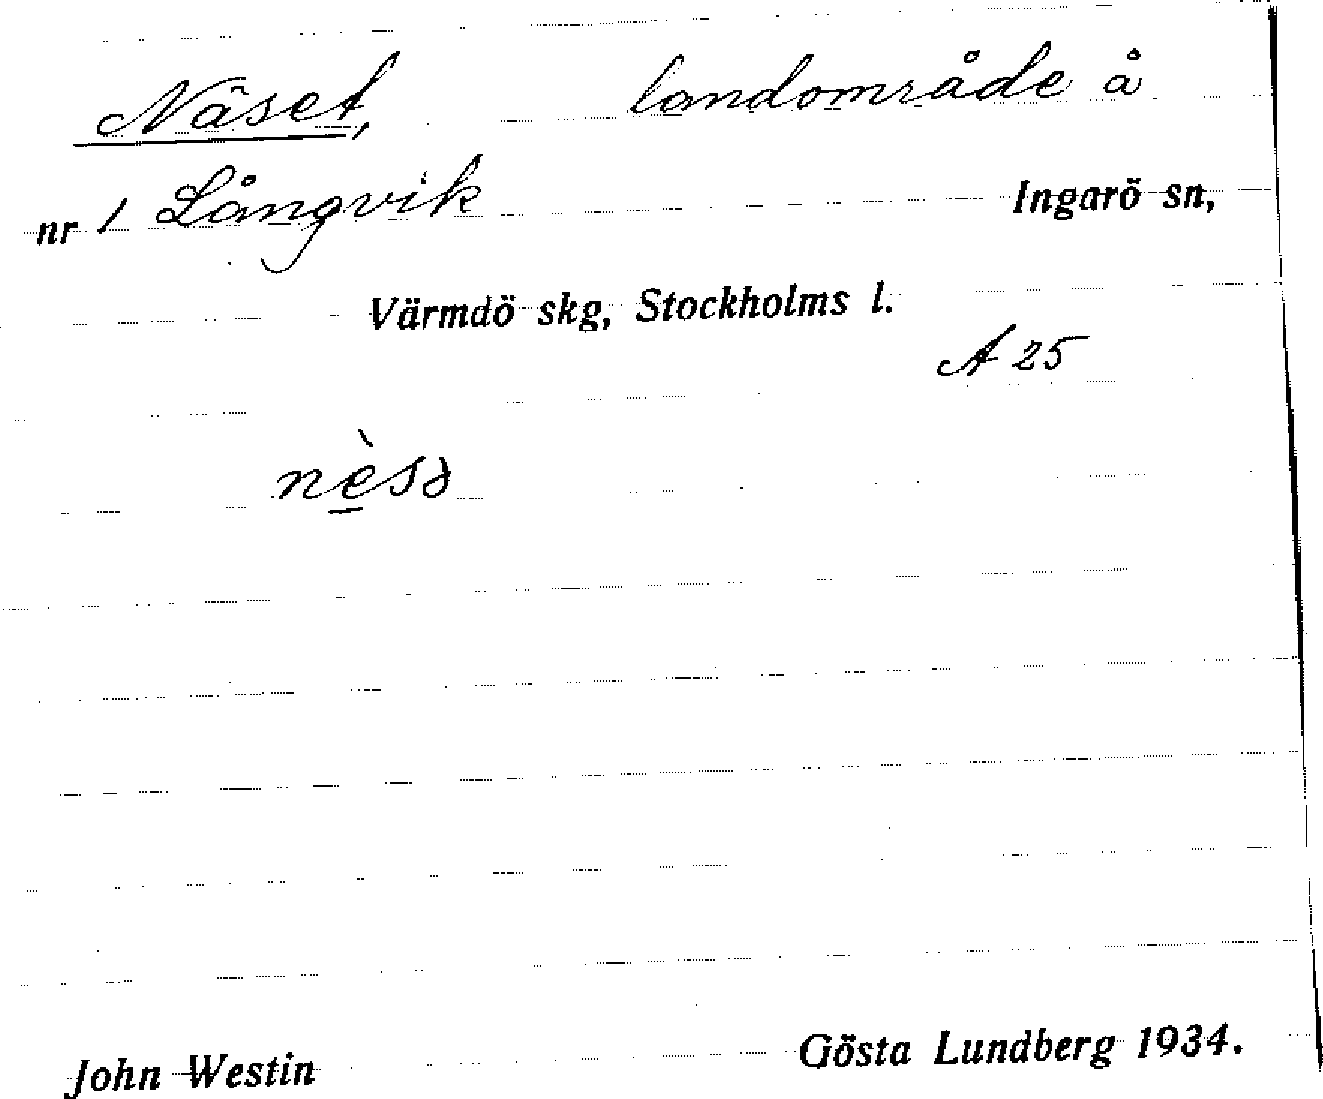 Näset, landområde å
nr 1 Långvik Ingarö sn,
Värmdö skg, Stockholms l.
A 25
nè̱sə
John Westin Gösta Lundberg 1934.